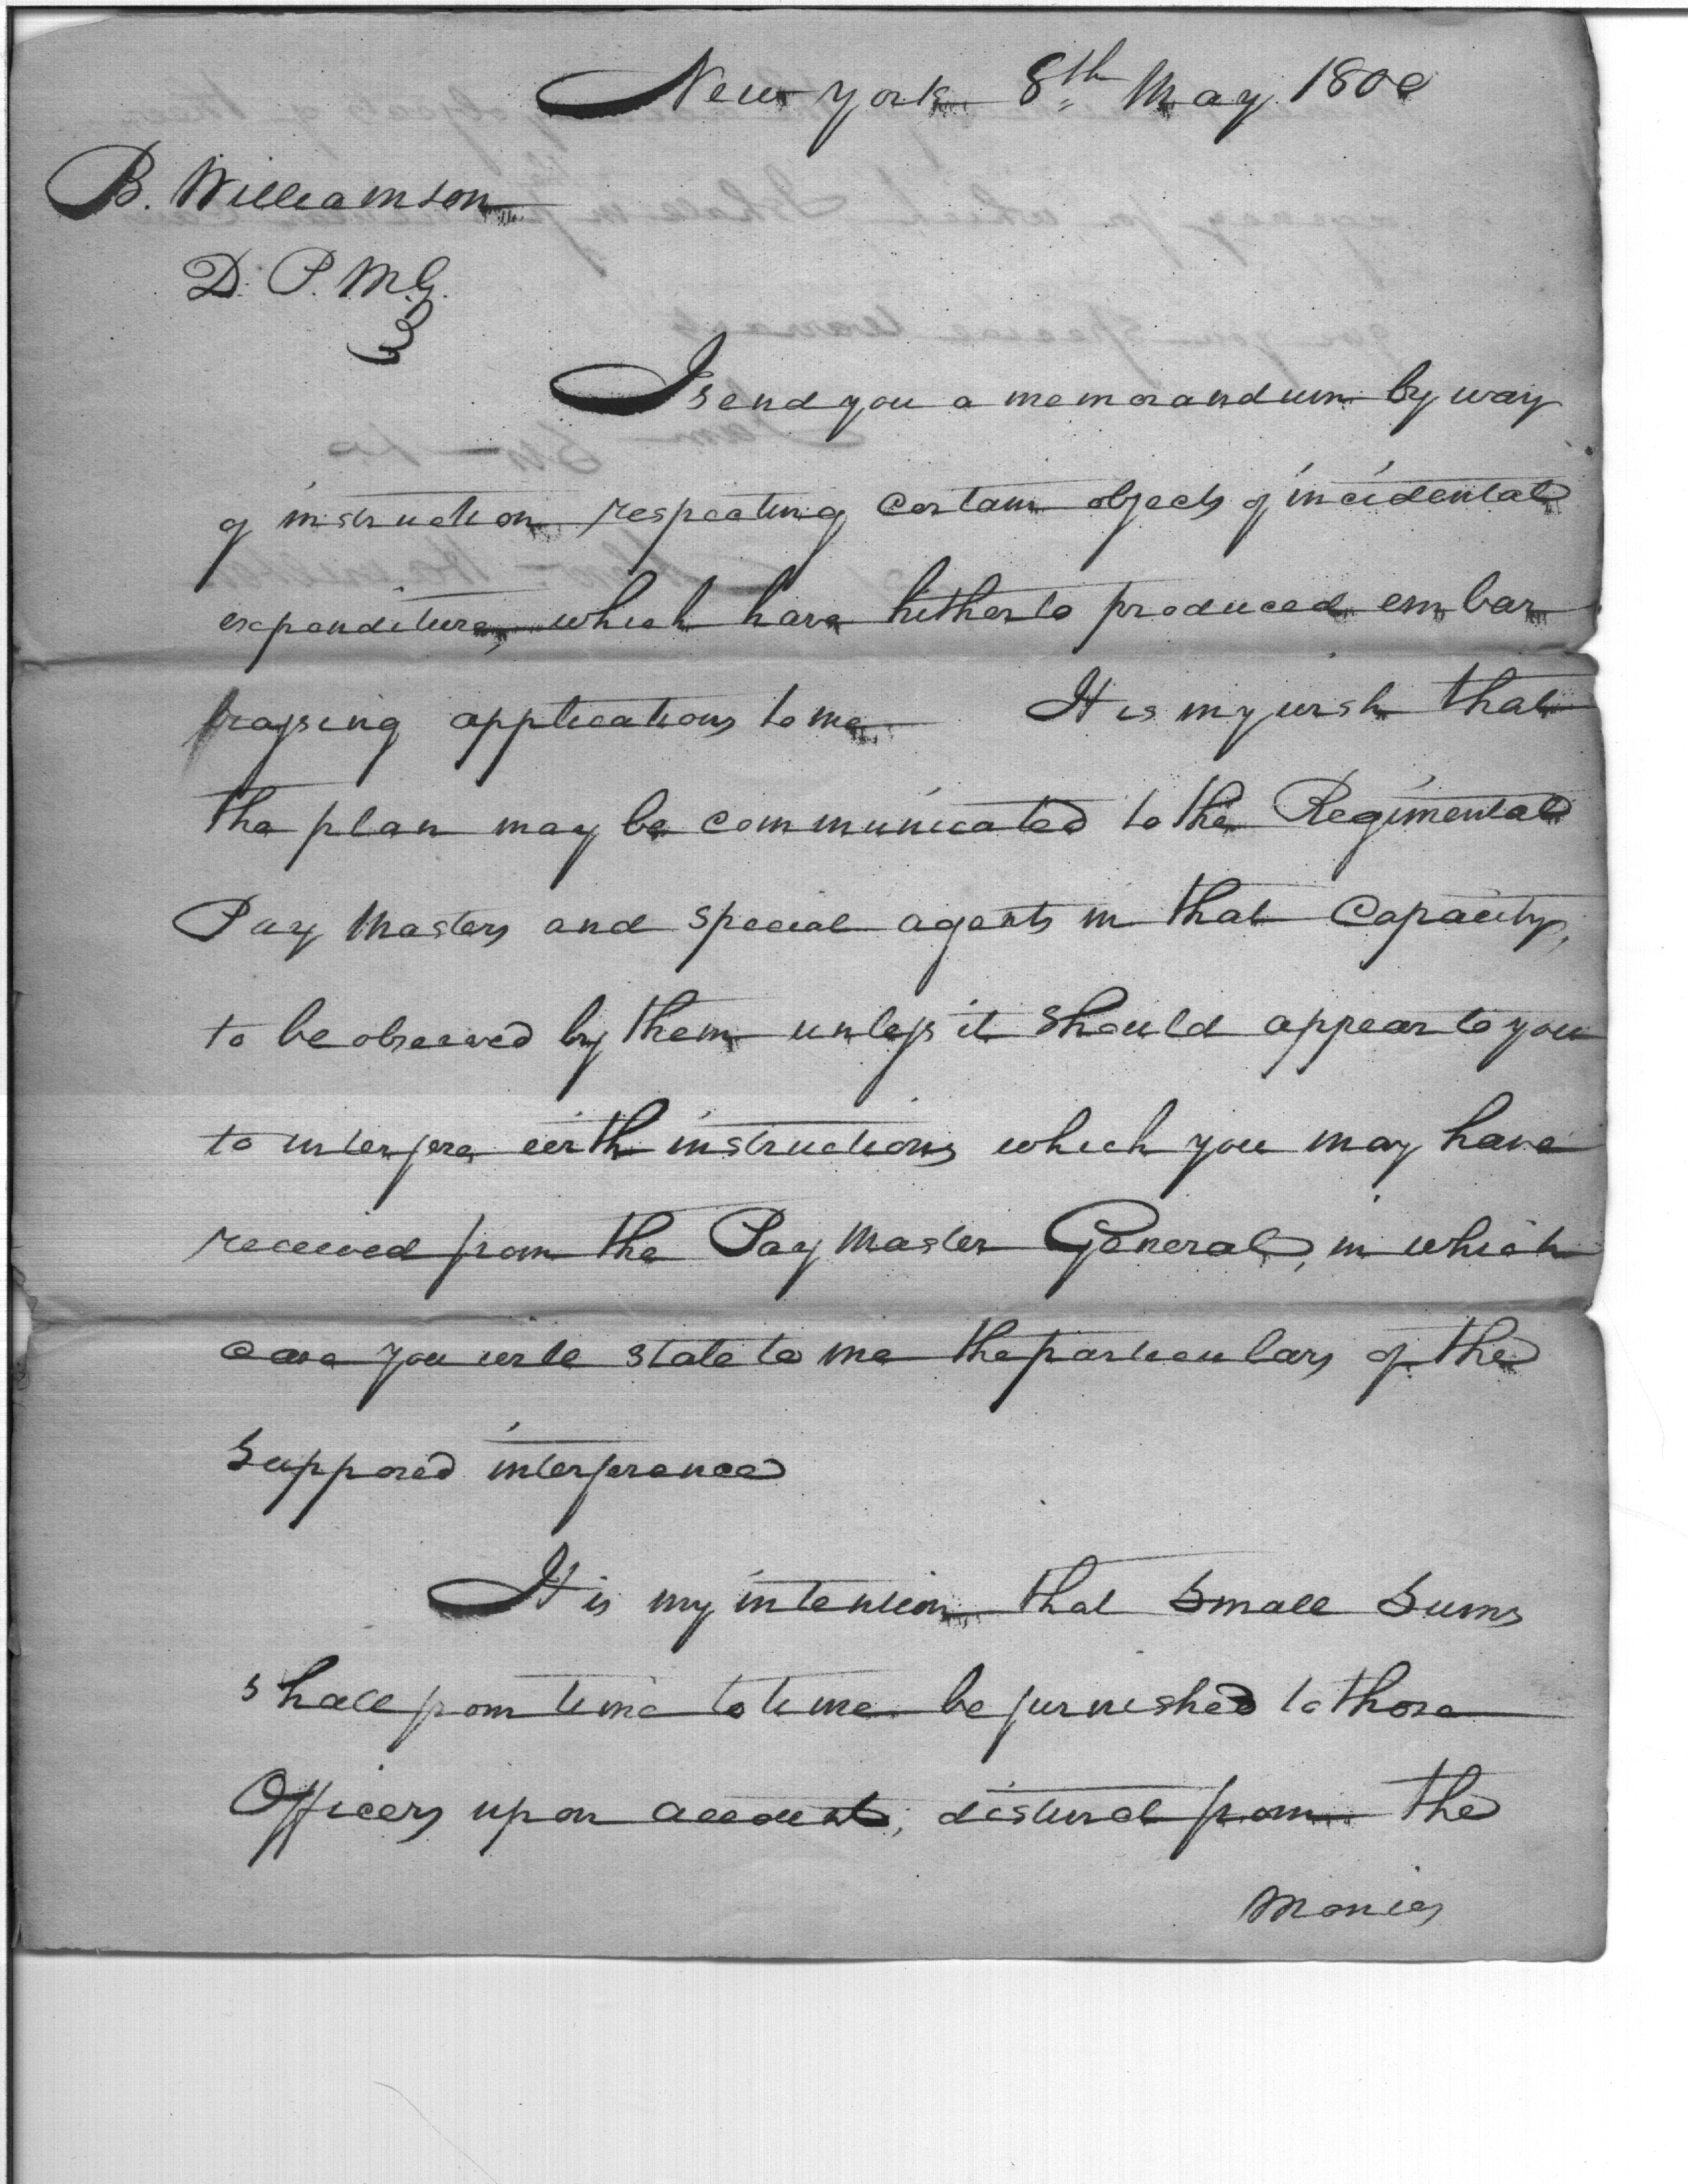 New york 8th May 1800
B. Williamson
D. P. M. G.
I send you a memorandum by way
of instruction respecting certain objects of incidental
expenditure, which have hitherto produced embar
rassing applications to me It is my wish that
the plan may be communicated to the Regimental
Pay Masters and special agents in that Capacity,
to be observed by them unless it should appear to you
to interfere with instructions which you may have
received from the Pay Master General, in which
case you will state to me the particulars of the
Supposed interference
It is my intention that Small Sums
shall from time to time be furnished to those
Officers upon account, distinct from the
Monies